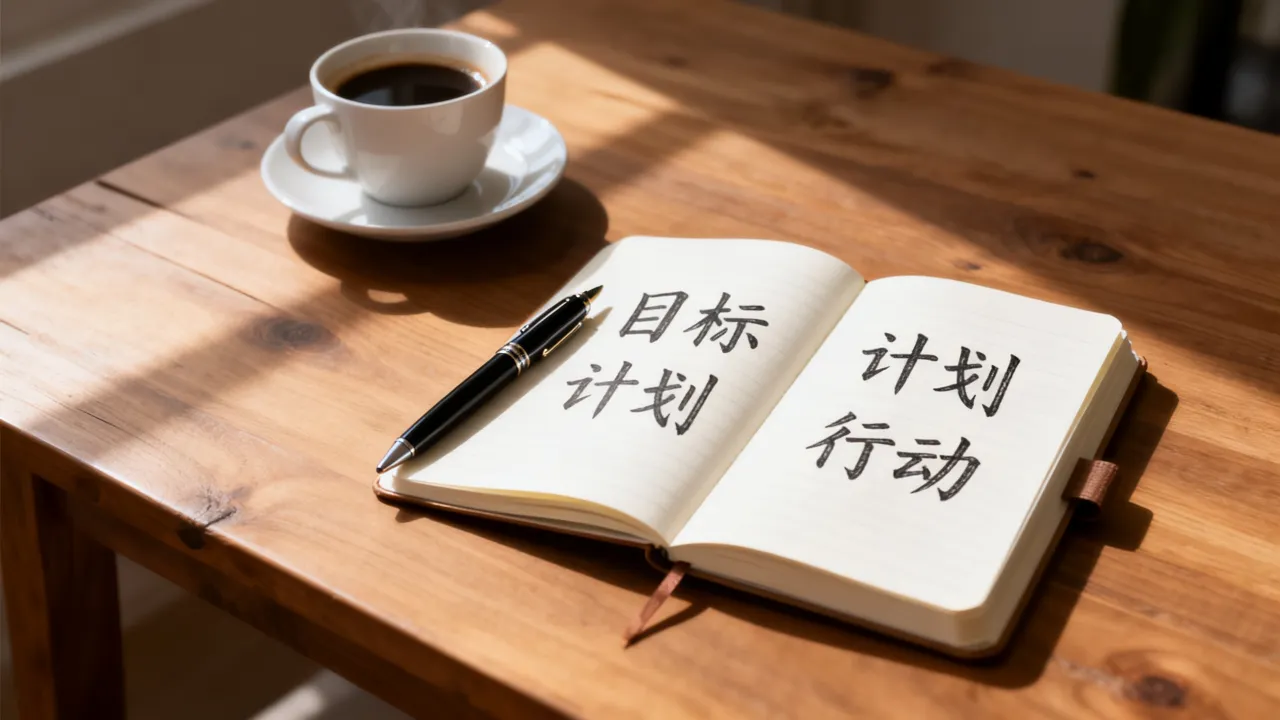 目标
计划
计划
行动